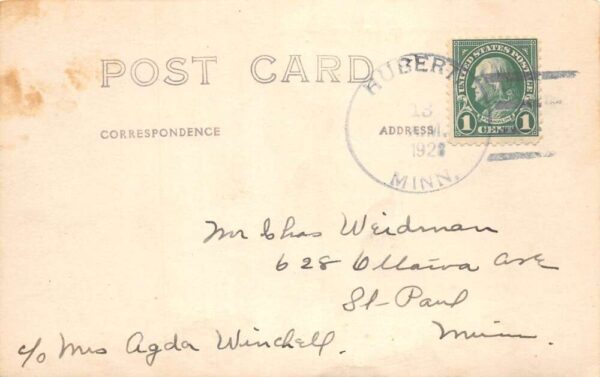 POST CARD
CORRESPONDENCE
ADDRESS
HUBERT
13
M.
192
MINN.
UNITED STATES POSTAGE
1 CENT 1
Mr Chas Weidman
628 Ottawa Ave
St-Paul
Minn.
c/o Mrs Agda Winchell.